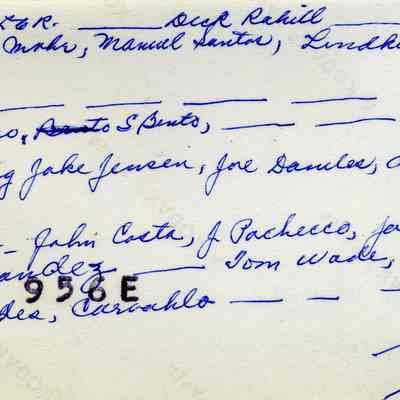 & R. ____ Dick Rahill ____
Mohr, Manuel Santos, Lindk
____ ____ ____ ____
o, S Bento, ____ ____
g Jake Jensen, Joe Daniles,
- John Costa, J. Pachecco, Jo
andez ____ Tom Wade,
956E
des, Carvahlo — — —